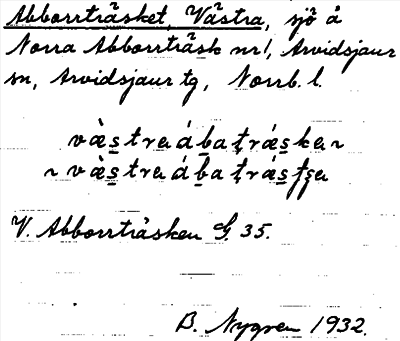 Abborrträsket, Västra, sjö å
Norra Abborrträsk nr 1, Arvidsjaur
sn, Arvidsjaur tg, Norrb. l.
væ̀straábatrǽskan
~ væ̀straábatrǽsʃʒa
V. Abborrträsken G. 35.
B. Nygren 1932.